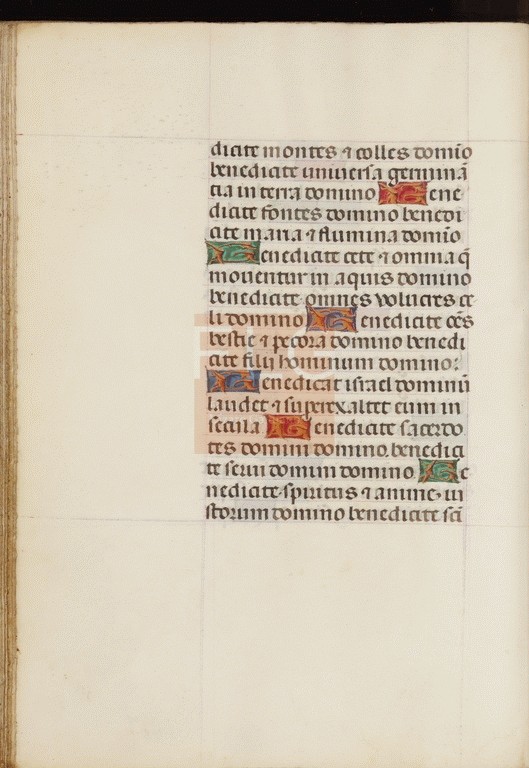 dicite montes ⁊ colles domīo
benedicite universa germinā
tia in terra domino Bene
dicite fontes domino benedi
cite maria ⁊ flumina domīo
Benedicite cete ⁊ omnia q̄
moventur in aquis domino
benedicite omnes volucres ce
li domino Benedicite oēs
bestie ⁊ pecora domino benedi
cite filij hominum domino:
Benedicat israel dominū
laudet ⁊ superexaltet eum in
secula Benedicite sacerdo
tes domini domino. benedici
te servi domini domino Be
nedicite spiritus ⁊ anime iu
storum domino benedicite scī